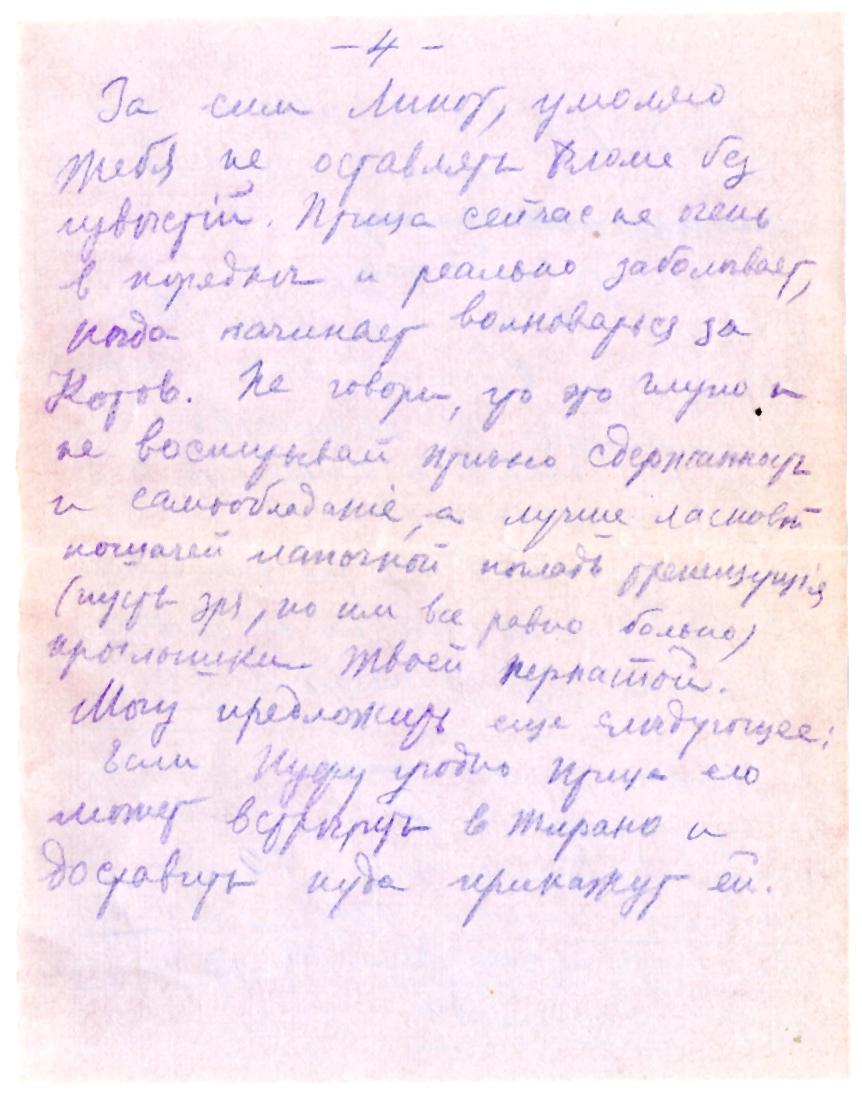 - 4 -
За сим Линот, умоляю
тебя не оставлять меня без
извѣстій. Птица сейчас не очень
в порядкѣ и реально заболѣвает,
когда начинает волноваться за
Котов. Не говори, что это глупо и
не воспитывай притью сдержанность
и самообладаніе, а лучше ласковой
кошачей лапочкой погладь трепещущія
(пусть зря, но им все равно больно)
крылышки твоей пернатой.
Могу предложить еще слѣдующее:
Если Нуфу угодно птица его
может встрѣтить в Тирано и
доставить куда прикажут ей.